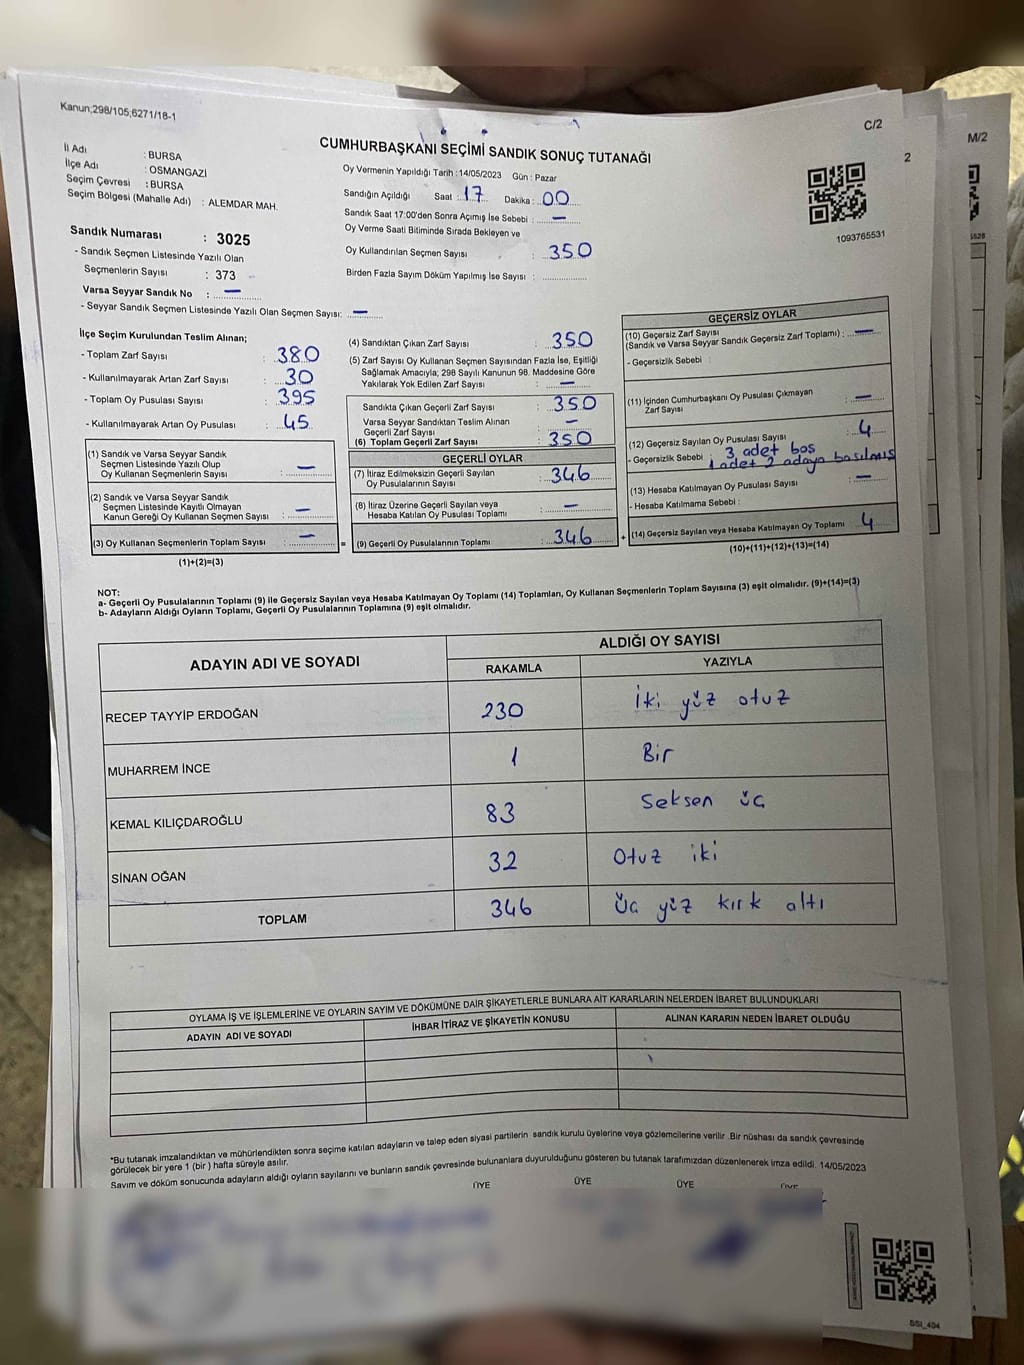 Kanun;298/105;6271/18-1
C/2
M/2
2
CUMHURBAŞKANI SEÇİMİ SANDIK SONUÇ TUTANAĞI
İl Adı : BURSA
İlçe Adı : OSMANGAZİ
Seçim Çevresi : BURSA
Seçim Bölgesi (Mahalle Adı) : ALEMDAR MAH.
Oy Vermenin Yapıldığı Tarih : 14/05/2023 Gün : Pazar
Sandığın Açıldığı Saat : 17 Dakika : 00
Sandık Saat 17:00'den Sonra Açımış İse Sebebi : —
Oy Verme Saati Bitiminde Sırada Bekleyen ve
Oy Kullandırılan Seçmen Sayısı : 350
Birden Fazla Sayım Döküm Yapılmış İse Sayısı :
1093765531
Sandık Numarası : 3025
- Sandık Seçmen Listesinde Yazılı Olan
Seçmenlerin Sayısı : 373
Varsa Seyyar Sandık No : —
- Seyyar Sandık Seçmen Listesinde Yazılı Olan Seçmen Sayısı: —
İlçe Seçim Kurulundan Teslim Alınan;
- Toplam Zarf Sayısı : 380
- Kullanılmayarak Artan Zarf Sayısı : 30
- Toplam Oy Pusulası Sayısı : 395
- Kullanılmayarak Artan Oy Pusulası : 45
(1) Sandık ve Varsa Seyyar Sandık
Seçmen Listesinde Yazılı Olup
Oy Kullanan Seçmenlerin Sayısı : —
(2) Sandık ve Varsa Seyyar Sandık
Seçmen Listesinde Kayıtlı Olmayan
Kanun Gereği Oy Kullanan Seçmen Sayısı : —
(3) Oy Kullanan Seçmenlerin Toplam Sayısı : —
(1)+(2)=(3)
=
(4) Sandıktan Çıkan Zarf Sayısı : 350
(5) Zarf Sayısı Oy Kullanan Seçmen Sayısından Fazla İse, Eşitliği
Sağlamak Amacıyla; 298 Sayılı Kanunun 98. Maddesine Göre
Yakılarak Yok Edilen Zarf Sayısı : —
Sandıkta Çıkan Geçerli Zarf Sayısı : 350
Varsa Seyyar Sandıktan Teslim Alınan
Geçerli Zarf Sayısı : —
(6) Toplam Geçerli Zarf Sayısı : 350
GEÇERLİ OYLAR
(7) İtiraz Edilmeksizin Geçerli Sayılan
Oy Pusulalarının Sayısı : 346
(8) İtiraz Üzerine Geçerli Sayılan veya
Hesaba Katılan Oy Pusulası Toplamı : —
(9) Geçerli Oy Pusulalarının Toplamı : 346
+
GEÇERSİZ OYLAR
(10) Geçersiz Zarf Sayısı
(Sandık ve Varsa Seyyar Sandık Geçersiz Zarf Toplamı) : —
- Geçersizlik Sebebi :
(11) İçinden Cumhurbaşkanı Oy Pusulası Çıkmayan
Zarf Sayısı : —
(12) Geçersiz Sayılan Oy Pusulası Sayısı : 4
- Geçersizlik Sebebi : 3 adet boş
1 adet 2 adaya basılmış
(13) Hesaba Katılmayan Oy Pusulası Sayısı : —
- Hesaba Katılmama Sebebi :
(14) Geçersiz Sayılan veya Hesaba Katılmayan Oy Toplamı : 4
(10)+(11)+(12)+(13)=(14)
NOT:
a- Geçerli Oy Pusulalarının Toplamı (9) ile Geçersiz Sayılan veya Hesaba Katılmayan Oy Toplamı (14) Toplamları, Oy Kullanan Seçmenlerin Toplam Sayısına (3) eşit olmalıdır. (9)+(14)=(3)
b- Adayların Aldığı Oyların Toplamı, Geçerli Oy Pusulalarının Toplamına (9) eşit olmalıdır.
ADAYIN ADI VE SOYADI
ALDIĞI OY SAYISI
RAKAMLA YAZIYLA
RECEP TAYYİP ERDOĞAN 230 İki yüz otuz
MUHARREM İNCE 1 Bir
KEMAL KILIÇDAROĞLU 83 Seksen üç
SİNAN OĞAN 32 Otuz iki
TOPLAM 346 Üç yüz kırk altı
OYLAMA İŞ VE İŞLEMLERİNE VE OYLARIN SAYIM VE DÖKÜMÜNE DAİR ŞİKAYETLERLE BUNLARA AİT KARARLARIN NELERDEN İBARET BULUNDUKLARI
ADAYIN ADI VE SOYADI
İHBAR İTİRAZ VE ŞİKAYETİN KONUSU
ALINAN KARARIN NEDEN İBARET OLDUĞU
*Bu tutanak imzalandıktan ve mühürlendikten sonra seçime katılan adayların ve talep eden siyasi partilerin sandık kurulu üyelerine veya gözlemcilerine verilir .Bir nüshası da sandık çevresinde
görülecek bir yere 1 (bir ) hafta süreyle asılır.
Sayım ve döküm sonucunda adayların aldığı oyların sayılarını ve bunların sandık çevresinde bulunanlara duyurulduğunu gösteren bu tutanak tarafımızdan düzenlenerek imza edildi. 14/05/2023
ÜYE ÜYE ÜYE ÜYE
SSI_404